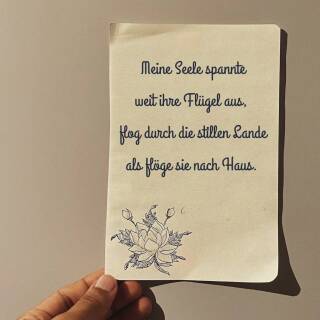 Meine Seele spannte
weit ihre Flügel aus,
flog durch die stillen Lande
als flöge sie nach Haus.